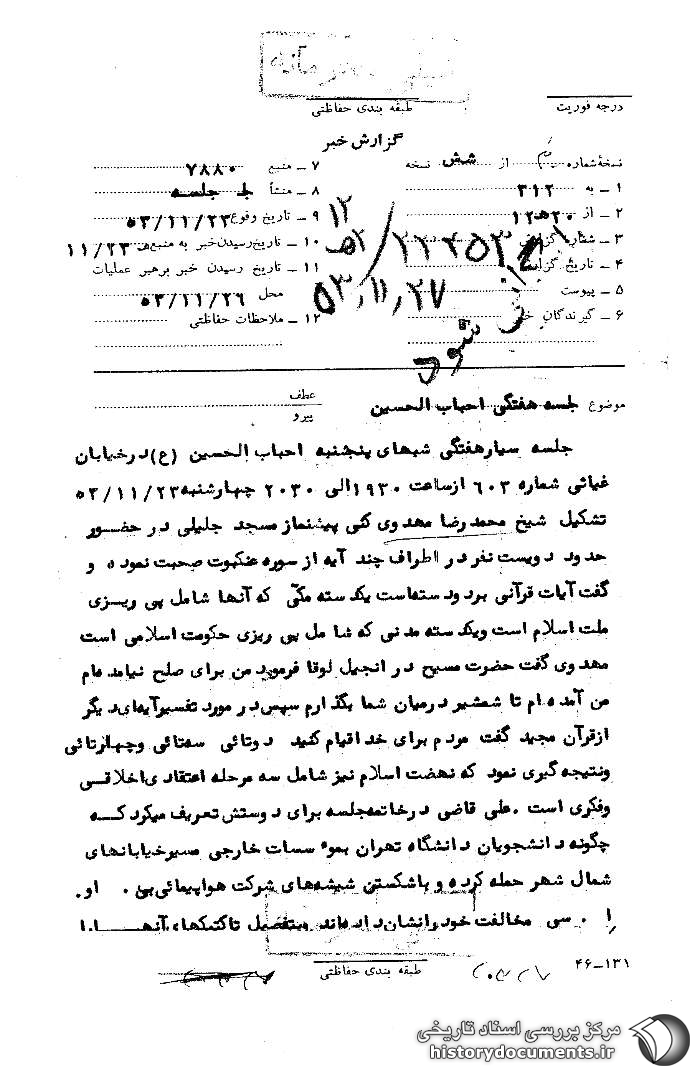 درجه فوریت
طبقه بندی حفاظتی
گزارش خبر
نسخهٔ شماره از شش نسخه
۱ ـ به ۳۱۲
۲ ـ از ۲۰هـ۱۲
۳ ـ شماره گزارش
۴ ـ تاریخ گزارش ۵۳،۱۱،۲۷
۵ ـ پیوست
۶ ـ گیرندگان خبر
۷ ـ منبع ۷۸۸۰
۸ ـ منشأ جلسه
۹ ـ تاریخ وقوع ۵۳/۱۱/۲۳
۱۰ ـ تاریخ رسیدن خبر به منبع ۱۱/۲۳
۱۱ ـ تاریخ رسیدن خبر برهبر عملیات
محل ۵۳/۱۱/۲۶
۱۲ ـ ملاحظات حفاظتی
شود
موضوع جلسه هفتگی احباب الحسین
عطف
پیرو
جلسه سیار هفتگی شبهای پنجشنبه احباب الحسین (ع) در خیابان
غیاثی شماره ۶۰۳ از ساعت ۱۹۳۰ الی ۲۰۳۰ چهارشنبه ۵۳/۱۱/۲۳
تشکیل شیخ محمد رضا مهدوی کنی پیشنماز مسجد جلیلی در حضور
حدود دویست نفر در اطراف چند آیه از سوره عنکبوت صحبت نموده و
گفت آیات قرآنی بر دو دسته است یکدسته مکّی که آنها شامل پی ریزی
ملت اسلام است و یکدسته مدنی که شامل پی ریزی حکومت اسلامی است
مهدوی گفت حضرت مسیح در انجیل لوقا فرمود من برای صلح نیامده ام
من آمده ام تا شمشیر در میان شما بگذارم سپس در مورد تفسیر آیه ای دیگر
از قرآن مجید گفت مردم برای خدا قیام کنید دوتائی سه تائی و چهارتائی
و نتیجه گیری نمود که نهضت اسلام نیز شامل سه مرحله اعتقادی اخلاقی
و فکری است . علی قاضی در خاتمه جلسه برای دوستش تعریف میکرد کـه
چگونه دانشجویان دانشگاه تهران بموء سسات خارجی مسیر خیابانهای
شمال شهر حمله کرده و با شکستن شیشه های شرکت هواپیمائی بی . او .
ا . سی مخالفت خود را نشان داده اند بتفصیل تاکتیکهای آنهـــا را
طبقه بندی حفاظتی
۴۶ـ۱۳۱
مرکز بررسی اسناد تاریخی
historydocuments.ir